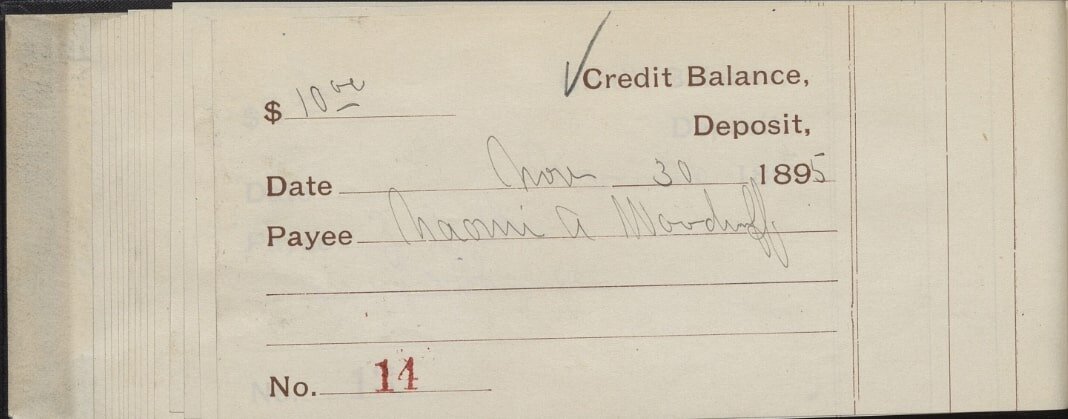 ✓Credit Balance,
$ 10 00
Deposit,
Date Nov 30 1895
Payee Naomi A Woodruff
No. 14